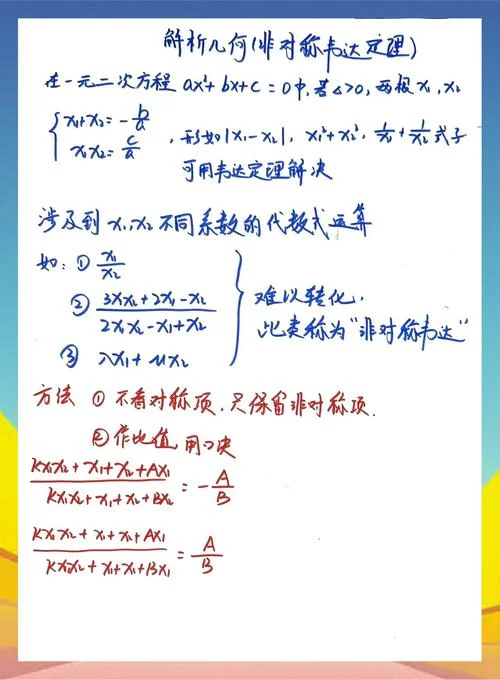 解析几何(非对称韦达定理)
在一元二次方程 ax²+bx+c=0中,若△>0,两根x₁,x₂
{ x₁+x₂=-b/a
x₁x₂=c/a ,形如|x₁-x₂|, x₁²+x₂², 1/x₁+1/x₂式子
可用韦达定理解决
涉及到x₁,x₂不同系数的代数式运算
如:① x₁/x₂
② (3x₁x₂+2x₁-x₂)/(2x₁x₂-x₁+x₂) } 难以转化.
此类称为"非对称韦达"
③ λx₁+μx₂
方法 ① 不看对称项,只保留非对称项.
②作比值 用口决
(Kx₁x₂+x₁+x₂+Ax₁)/(Kx₁x₂+x₁+x₂+Bx₂)=-A/B
(Kx₁x₂+x₁+x₂+Ax₁)/(Kx₁x₂+x₁+x₁+Bx₁)=A/B